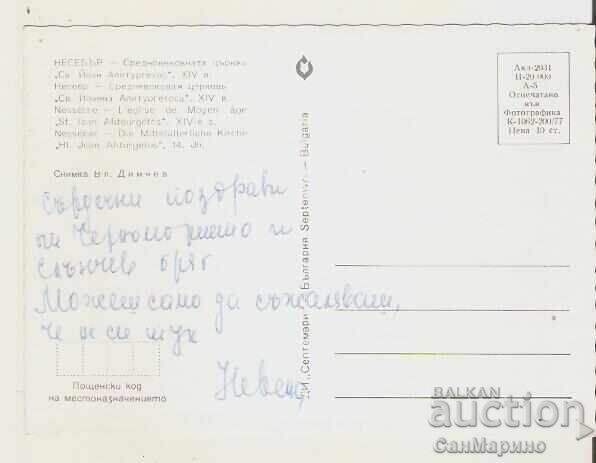 НЕСЕБЪР — Средновековната църква
„Св. Йоан Алитургетос“, XIV в.
Несебр — Средневековая церковь
„Св. Иоанна Алитургетоса“, XIV в.
Nessèbre — L'église de Moyen âge
"St. Ioan Alitourgétos", XIV-e s.
Nesseber — Die Mittelalterliche Kirche
"Hl. Joan Aliturgetos", 14. Jh.
Снимка Вл. Димчев
Сърдечни поздрави
от Черноморието и
Слънчев бряг.
Можеш само да съжаляваш,
че не си тук
Невена
Пощенски код
на местоназначението
ДИ „Септември“ — България Septemvri — Bulgaria
Акл-2031
П-20 000
А-5
Отпечатано
във
Фотографика
К-1062-200/77
Цена 10 ст.
BALKAN
auction
СанМарино